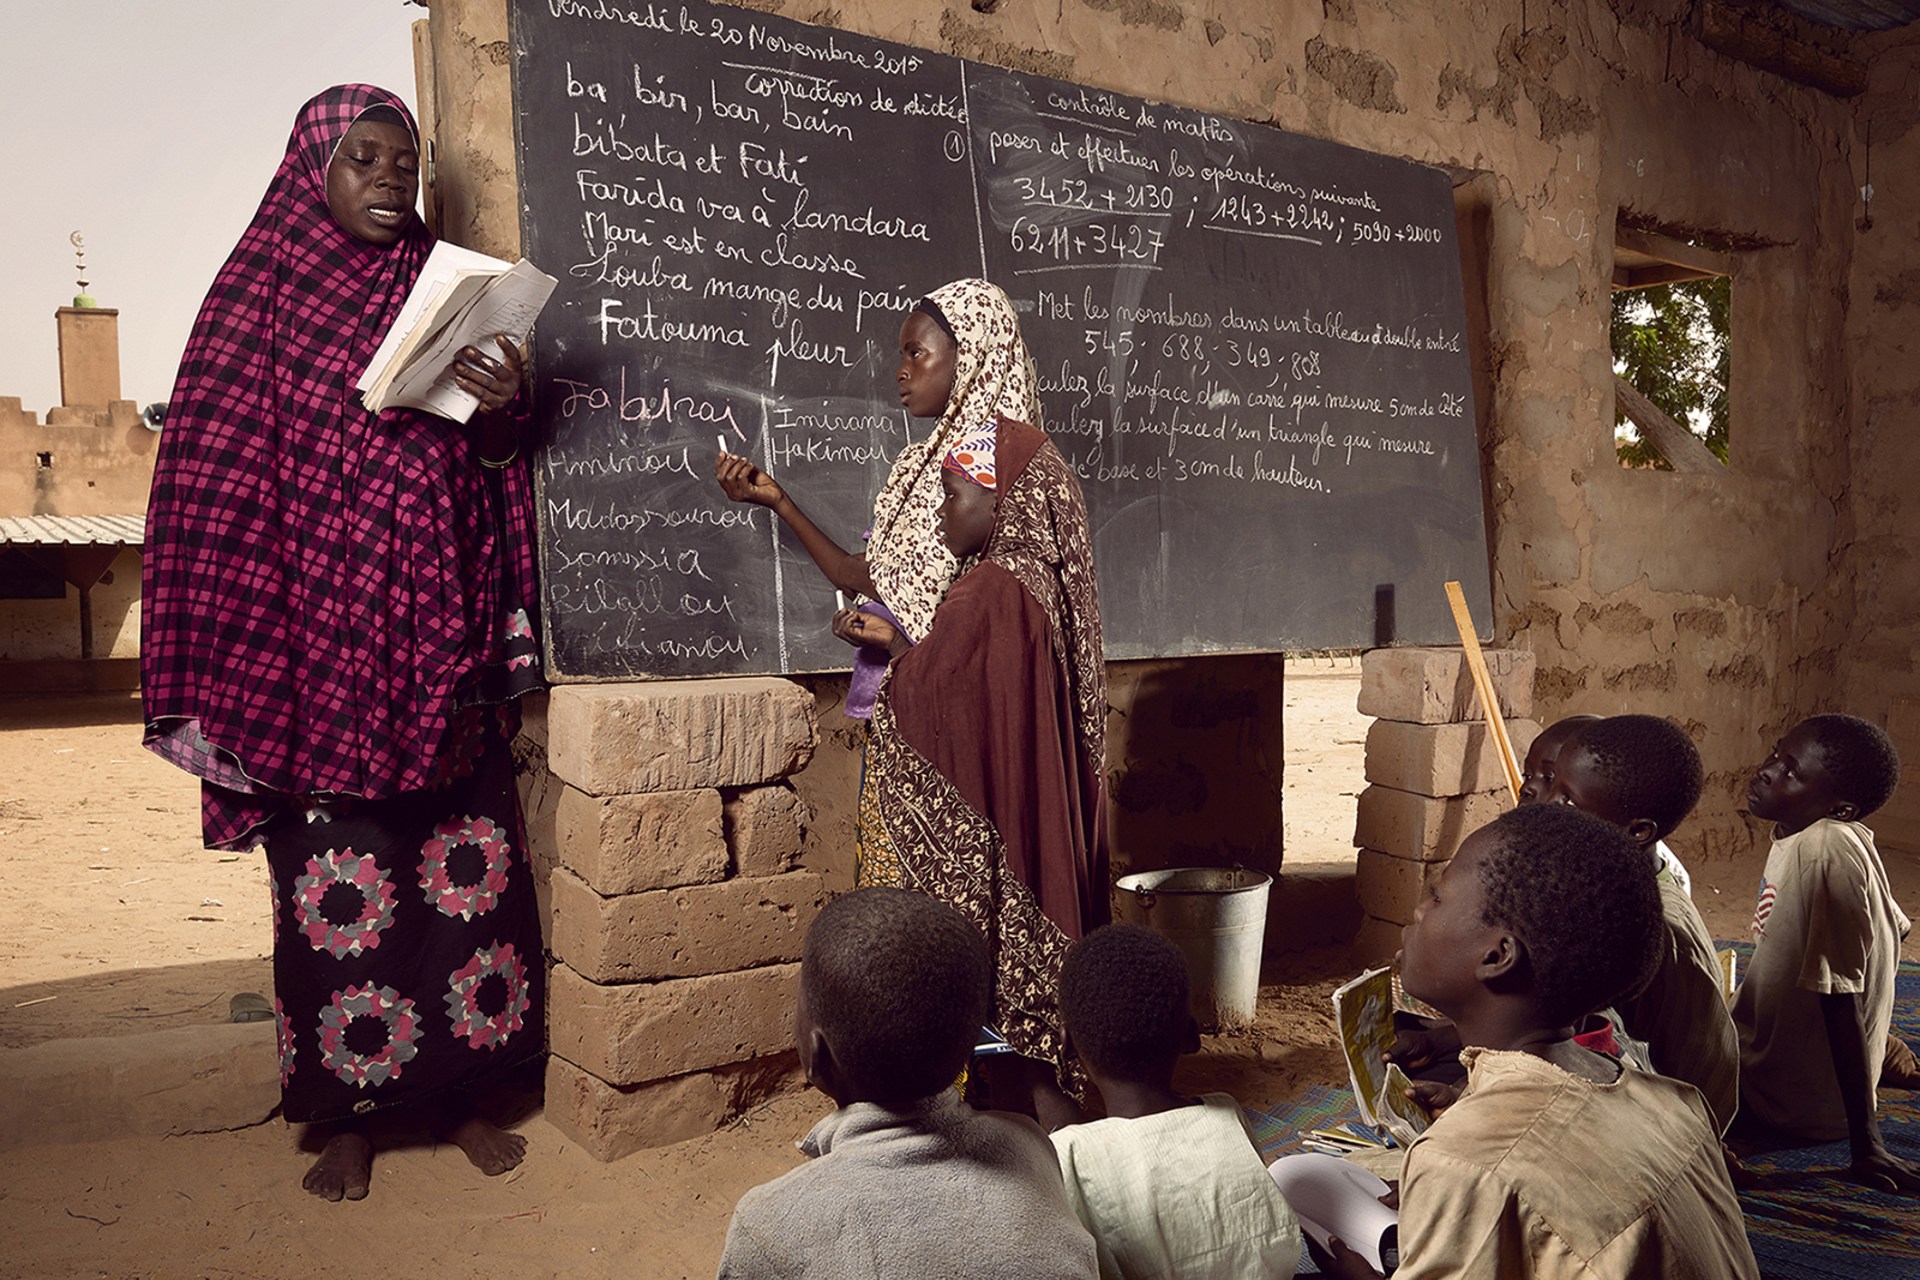 Vendredi le 20 Novembre 2015
correction de dictée
ba, bir, bar, bain
①
bibata et Fati
Farida va à landara
Mari est en classe
Louba mange du pain
Fatouma pleur
Jabirai
Aminou
Mddassourou
Somssia
Bilallou
Imirana
Hakimou
contrôle de maths
poser et effectuer les opérations suivante
3452 + 2130 ; 1243 + 2242 ; 5090 + 2000
6211 + 3427
Met les nombres dans un tableau à double entré
545, 688, 349, 808
culez la surface d'un carré qui mesure 5cm de côté
culez la surface d'un triangle qui mesure
de base et 3cm de hauteur.